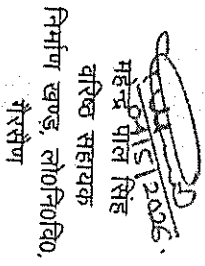 महेन्द्र पाल सिंह
वरिष्ठ सहायक
निर्माण खण्ड, लो०नि०वि०,
गैरसैण